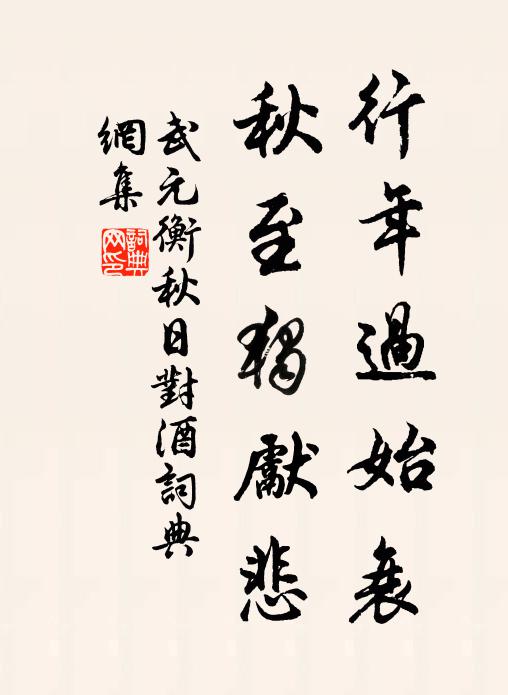 行年過始衰
秋至獨獻悲
武元衡秋日對酒詞典
網集
詞典
网印